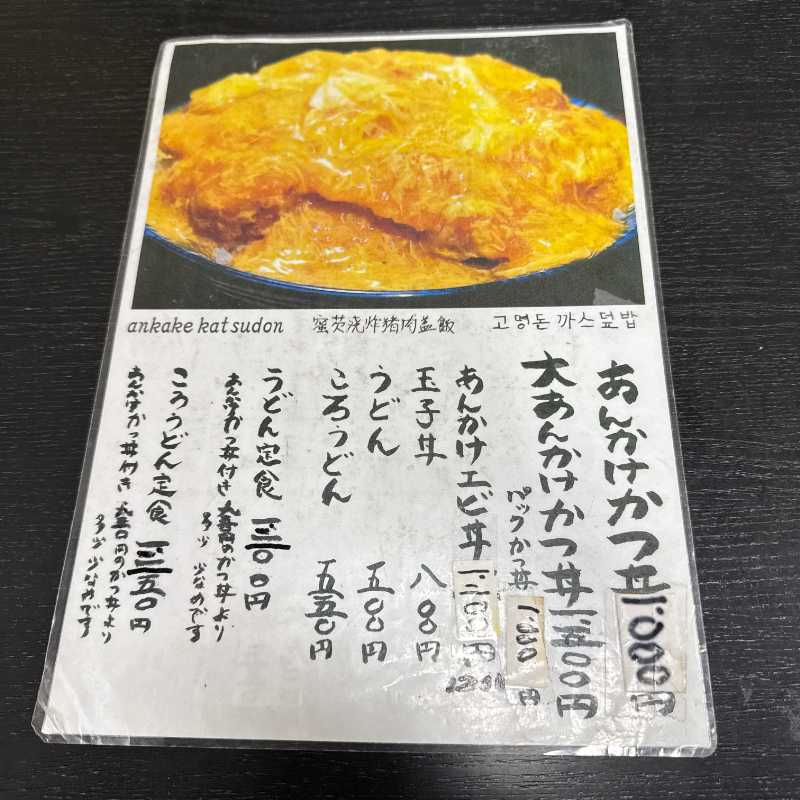 ankake katsudon
蜜芡浇炸猪肉盖飯
고명돈까스덮밥
あんかけかつ丼 1.000円
大あんかけかつ丼 一、五〇〇円
パックかつ丼 円
あんかけエビ丼 円
玉子丼 八〇〇円
うどん 五〇〇円
ころうどん 五五〇円
うどん定食 一、三〇〇円
あんかけかつ丼付き
円のかつ丼より
多少 少なめです
ころうどん定食 一、三五〇円
あんかけかつ丼付き
円のかつ丼より
多少 少なめです